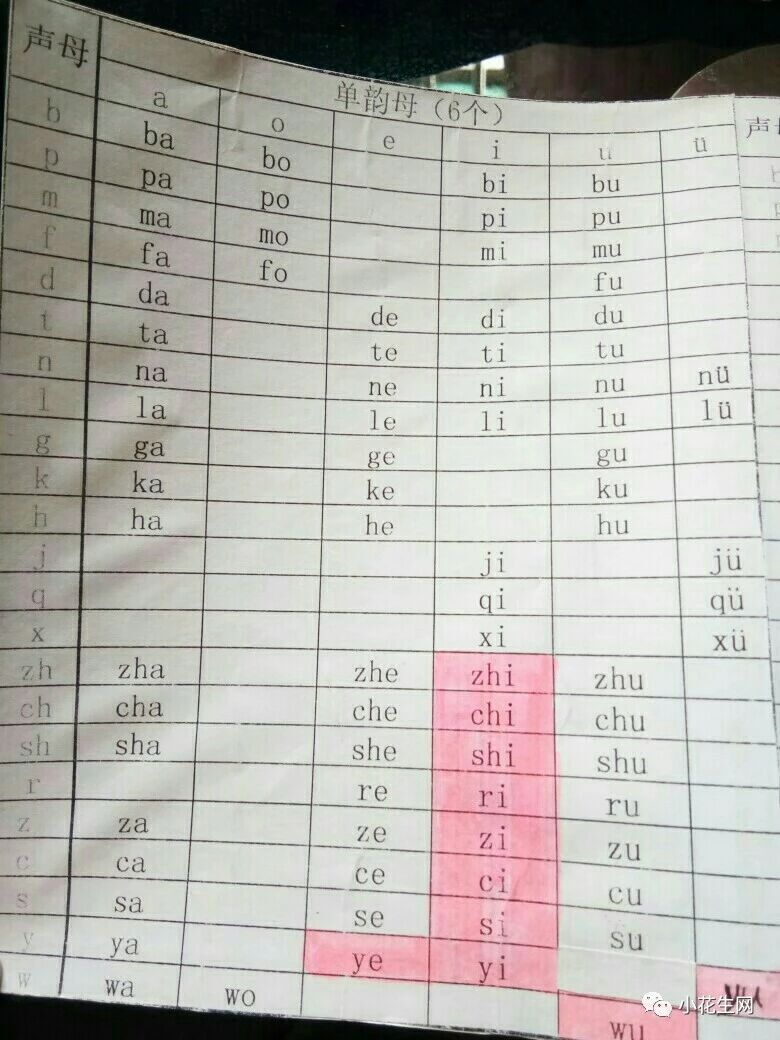 声母 单韵母（6个） 声母
a o e i u ü
b ba bo bi bu
p pa po pi pu
m ma mo mi mu
f fa fo fu
d da de di du
t ta te ti tu
n na ne ni nu nü
l la le li lu lü
g ga ge gu
k ka ke ku
h ha he hu
j ji jü
q qi qü
x xi xü
zh zha zhe zhi zhu
ch cha che chi chu
sh sha she shi shu
r re ri ru
z za ze zi zu
c ca ce ci cu
s sa se si su
y ya ye yi
w wa wo wu
小花生网